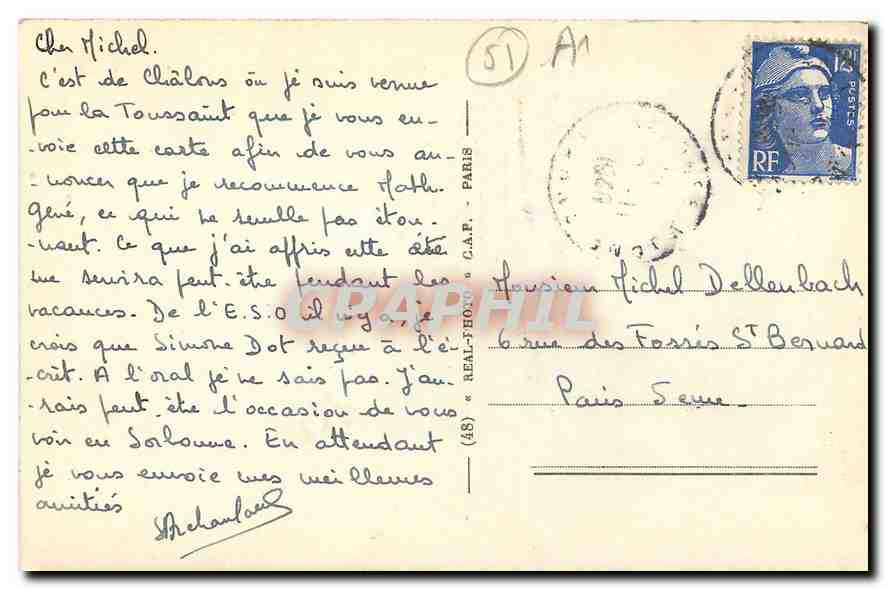 Cher Michel.
C'est de Châlons où je suis venue
pour la Toussaint que je vous en-
-voie cette carte afin de vous an-
-noncer que je recommence Math.
Géné, ce qui ne semble pas éton-
-nant. Ce que j'ai appris cette été
me servira peut-être pendant les
vacances. De l'E.S.O il n'y a, je
crois que Simone Dot reçue à l'é-
-crit. A l'oral je ne sais pas. J'au-
-rais peut-être l'occasion de vous
voir en Sorbonne. En attendant
je vous envoie mes meilleures
amitiés
51 A1
12F
POSTES
RF
(48) « REAL-PHOTO » C.A.P. - PARIS
Monsieur Michel Dellenbach
6 rue des Fossés St Bernard
Paris Seine
CPAPHIL